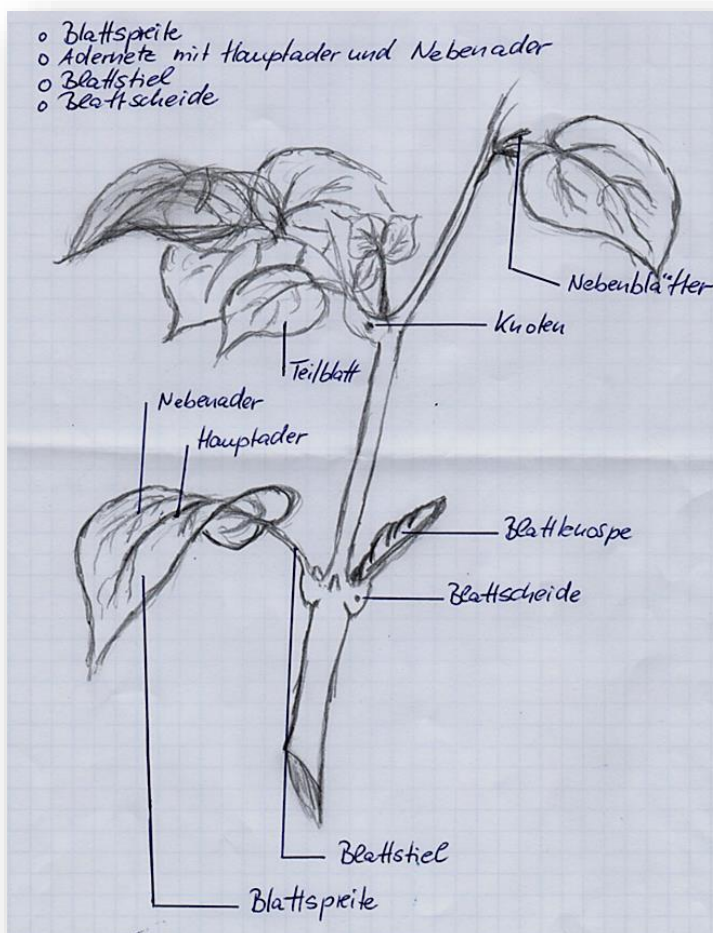 o Blattspreite
o Adernetz mit Hauptader und Nebenader
o Blattstiel
o Blattscheide
Nebenblätter
Knoten
Teilblatt
Nebenader
Hauptader
Blattknospe
Blattscheide
Blattstiel
Blattspreite